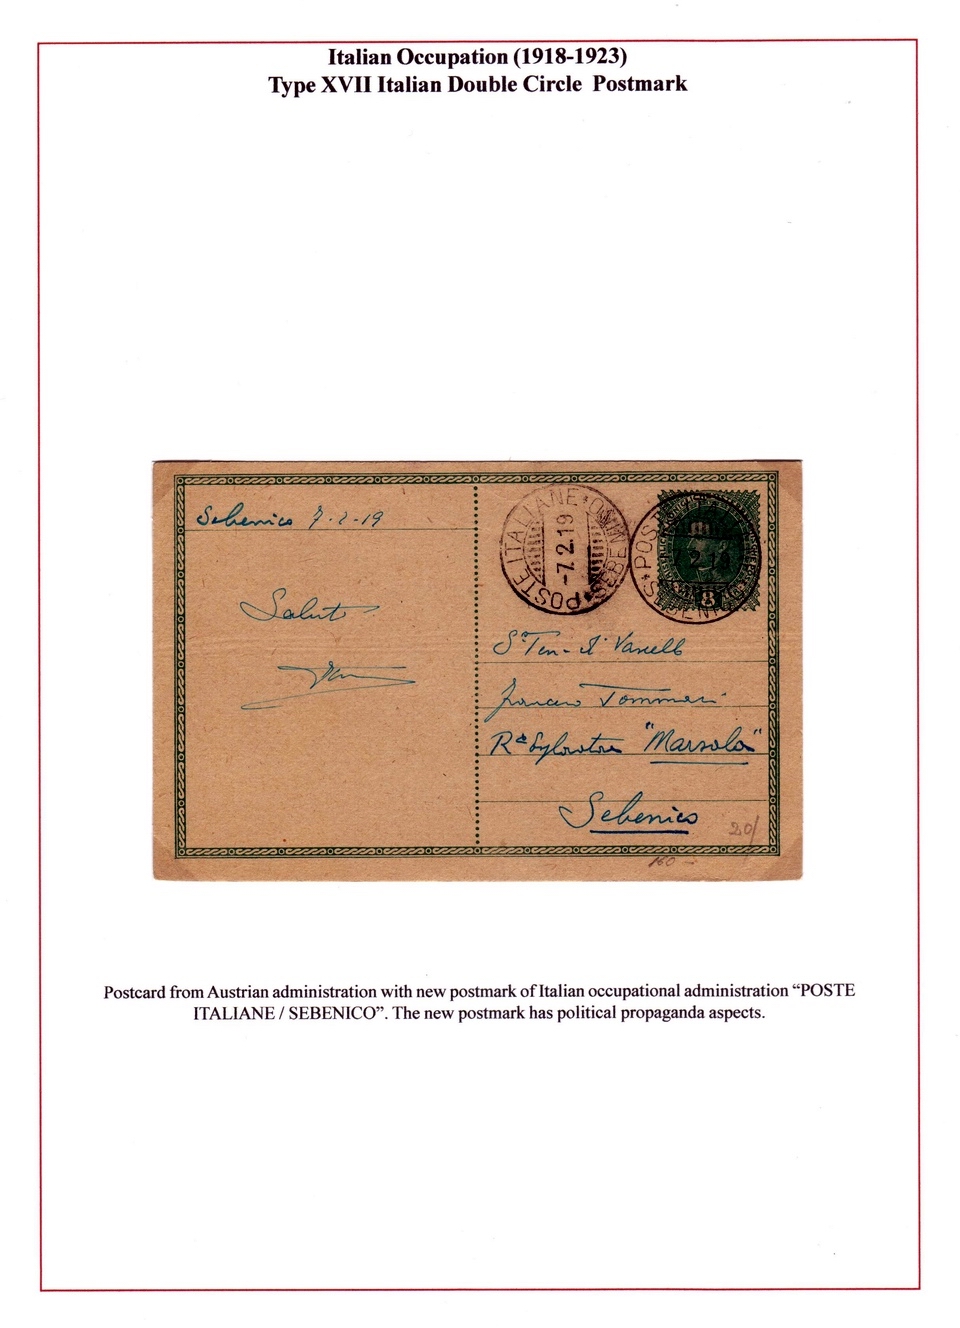 Italian Occupation (1918-1923)
Type XVII Italian Double Circle Postmark
Sebenico 7-2-19
POSTE ITALIANE
-7.2.19
SEBENICO
8
Saluti
S. Ten.
Tommasi
"Marsala"
Sebenico
20/
160 -
Postcard from Austrian administration with new postmark of Italian occupational administration “POSTE
ITALIANE / SEBENICO”. The new postmark has political propaganda aspects.